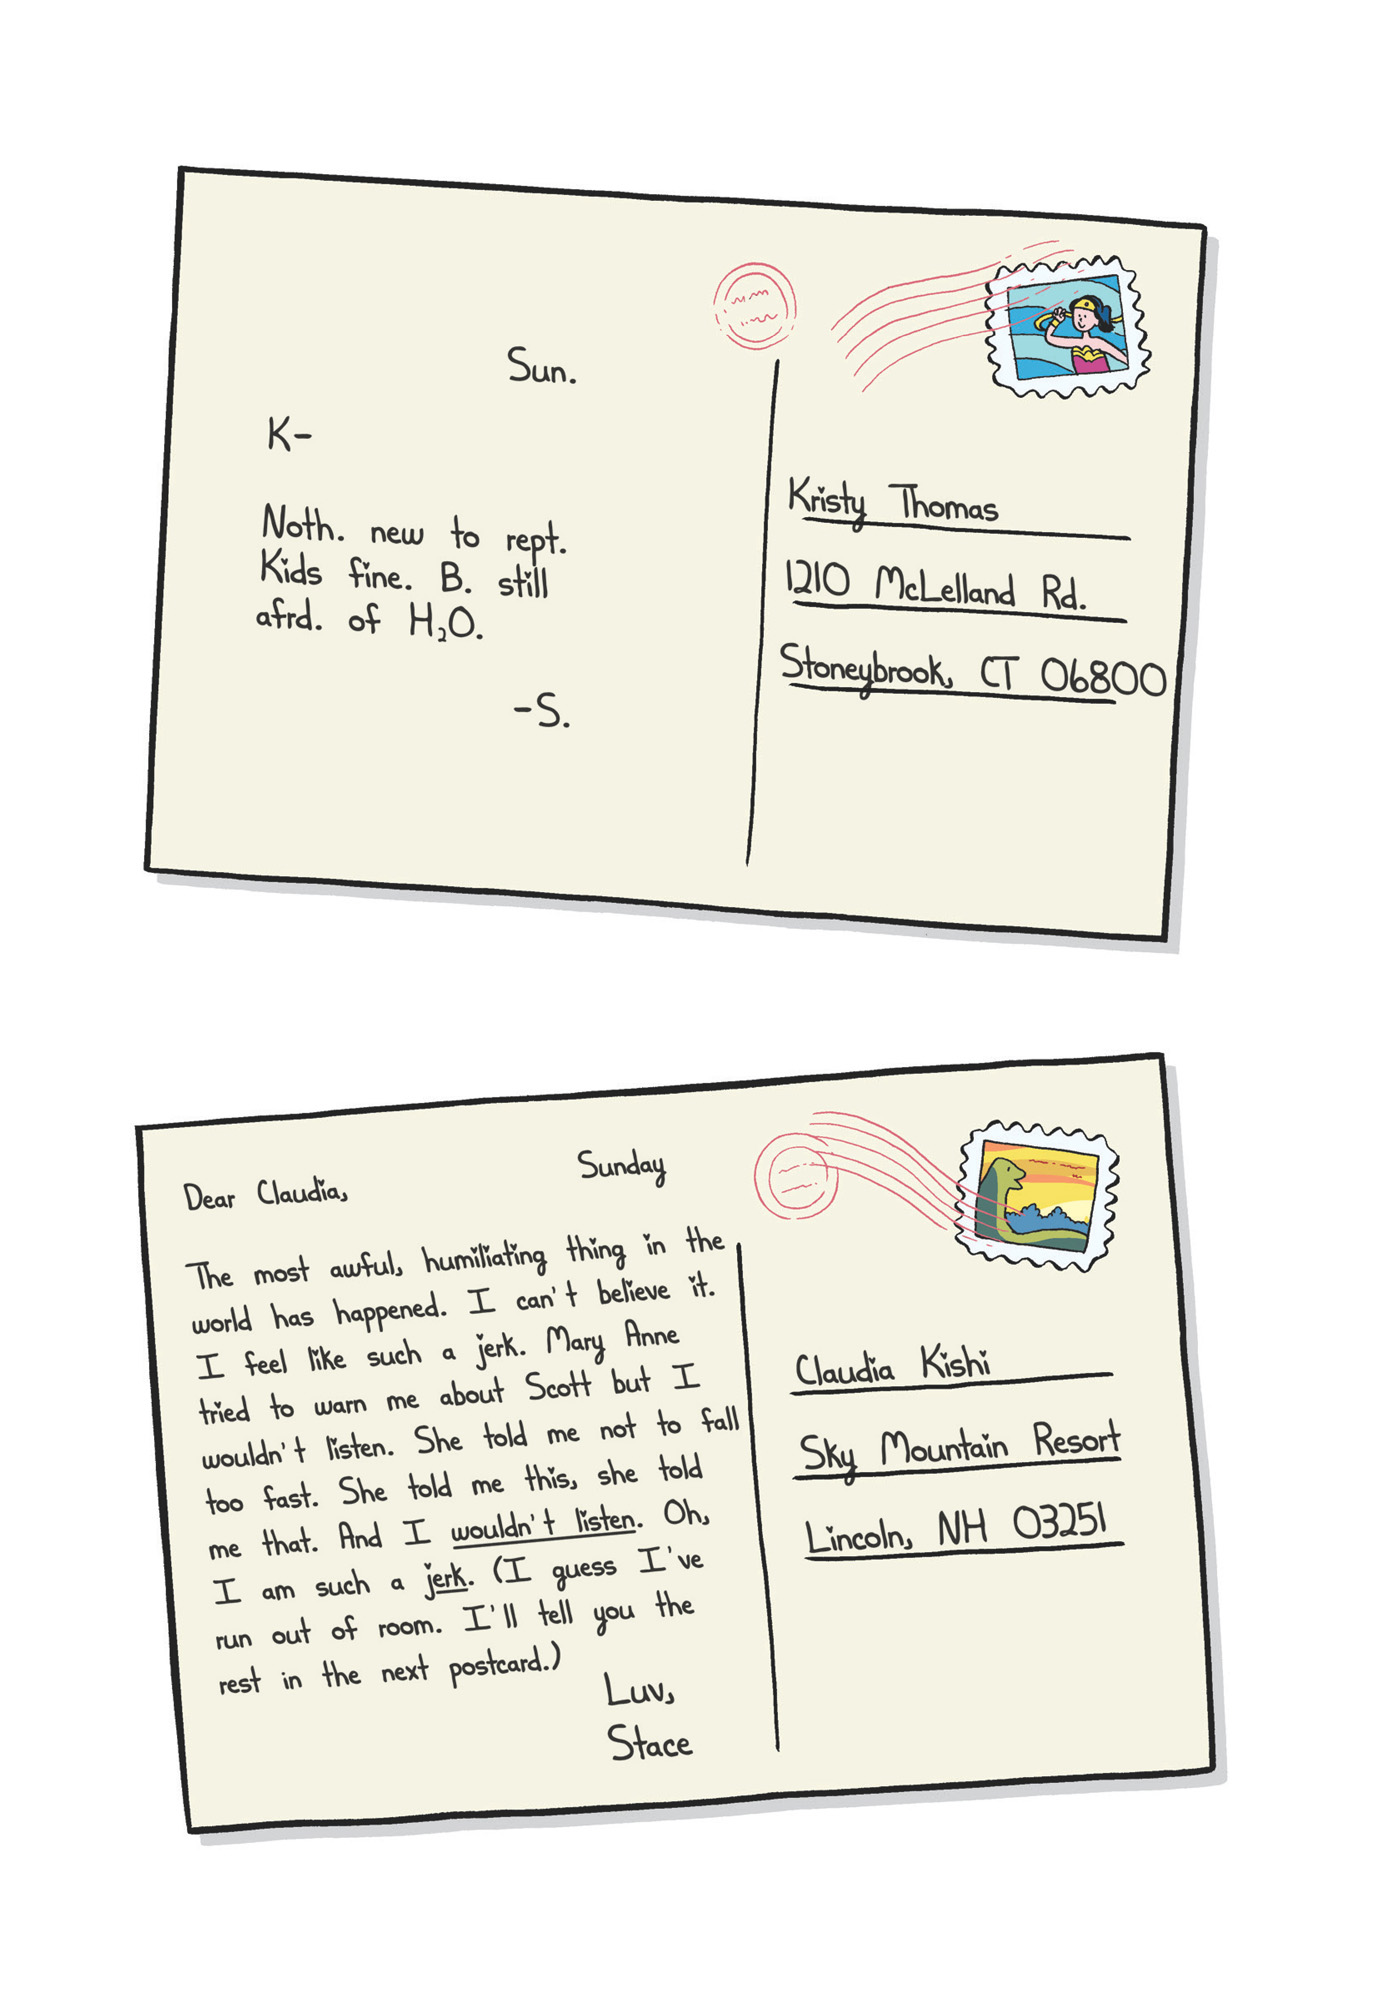 Sun.
K-
Noth. new to rept.
Kids fine. B. still
afrd. of H₂O.
-S.
Kristy Thomas
1210 McLelland Rd.
Stoneybrook, CT 06800
Sunday
Dear Claudia,
The most awful, humiliating thing in the
world has happened. I can't believe it.
I feel like such a jerk. Mary Anne
tried to warn me about Scott but I
wouldn't listen. She told me not to fall
too fast. She told me this, she told
me that. And I wouldn't listen. Oh,
I am such a jerk. (I guess I've
run out of room. I'll tell you the
rest in the next postcard.)
Luv,
Stace
Claudia Kishi
Sky Mountain Resort
Lincoln, NH 03251